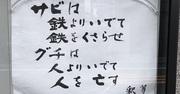 サビは
鉄よりいでて
鉄をくさらせ
グチは
人よりいでて
人を亡す